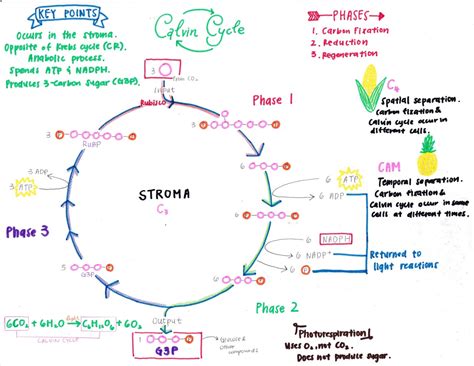 KEY POINTS
Occurs in the stroma.
Opposite of Krebs cycle (CR).
Anabolic process.
Spends ATP & NADPH.
Produces 3-Carbon Sugar (G3P).
Calvin Cycle
PHASES
1. Carbon Fixation
2. Reduction
3. Regeneration
C4
Spatial separation.
Carbon fixation &
Calvin cycle occur in
different cells.
CAM
Temporal separation.
Carbon fixation &
Calvin cycle occur in same
cells at different times.
3
from CO2
Input
Rubisco
Phase 1
3
3
RuBP
6
3 ADP
3 ATP
6 ATP
6 ADP
STROMA
C3
6
Phase 3
6 NADPH
6 NADP+
6
Returned to
light reactions
5
G3P
6
Phase 2
Output
1
G3P
Glucose &
Other
compounds
6CO2 + 6H2O → C6H12O6 + 6O2
light
CALVIN CYCLE
!Photorespiration!
Uses O2, not CO2.
Does not produce sugar.